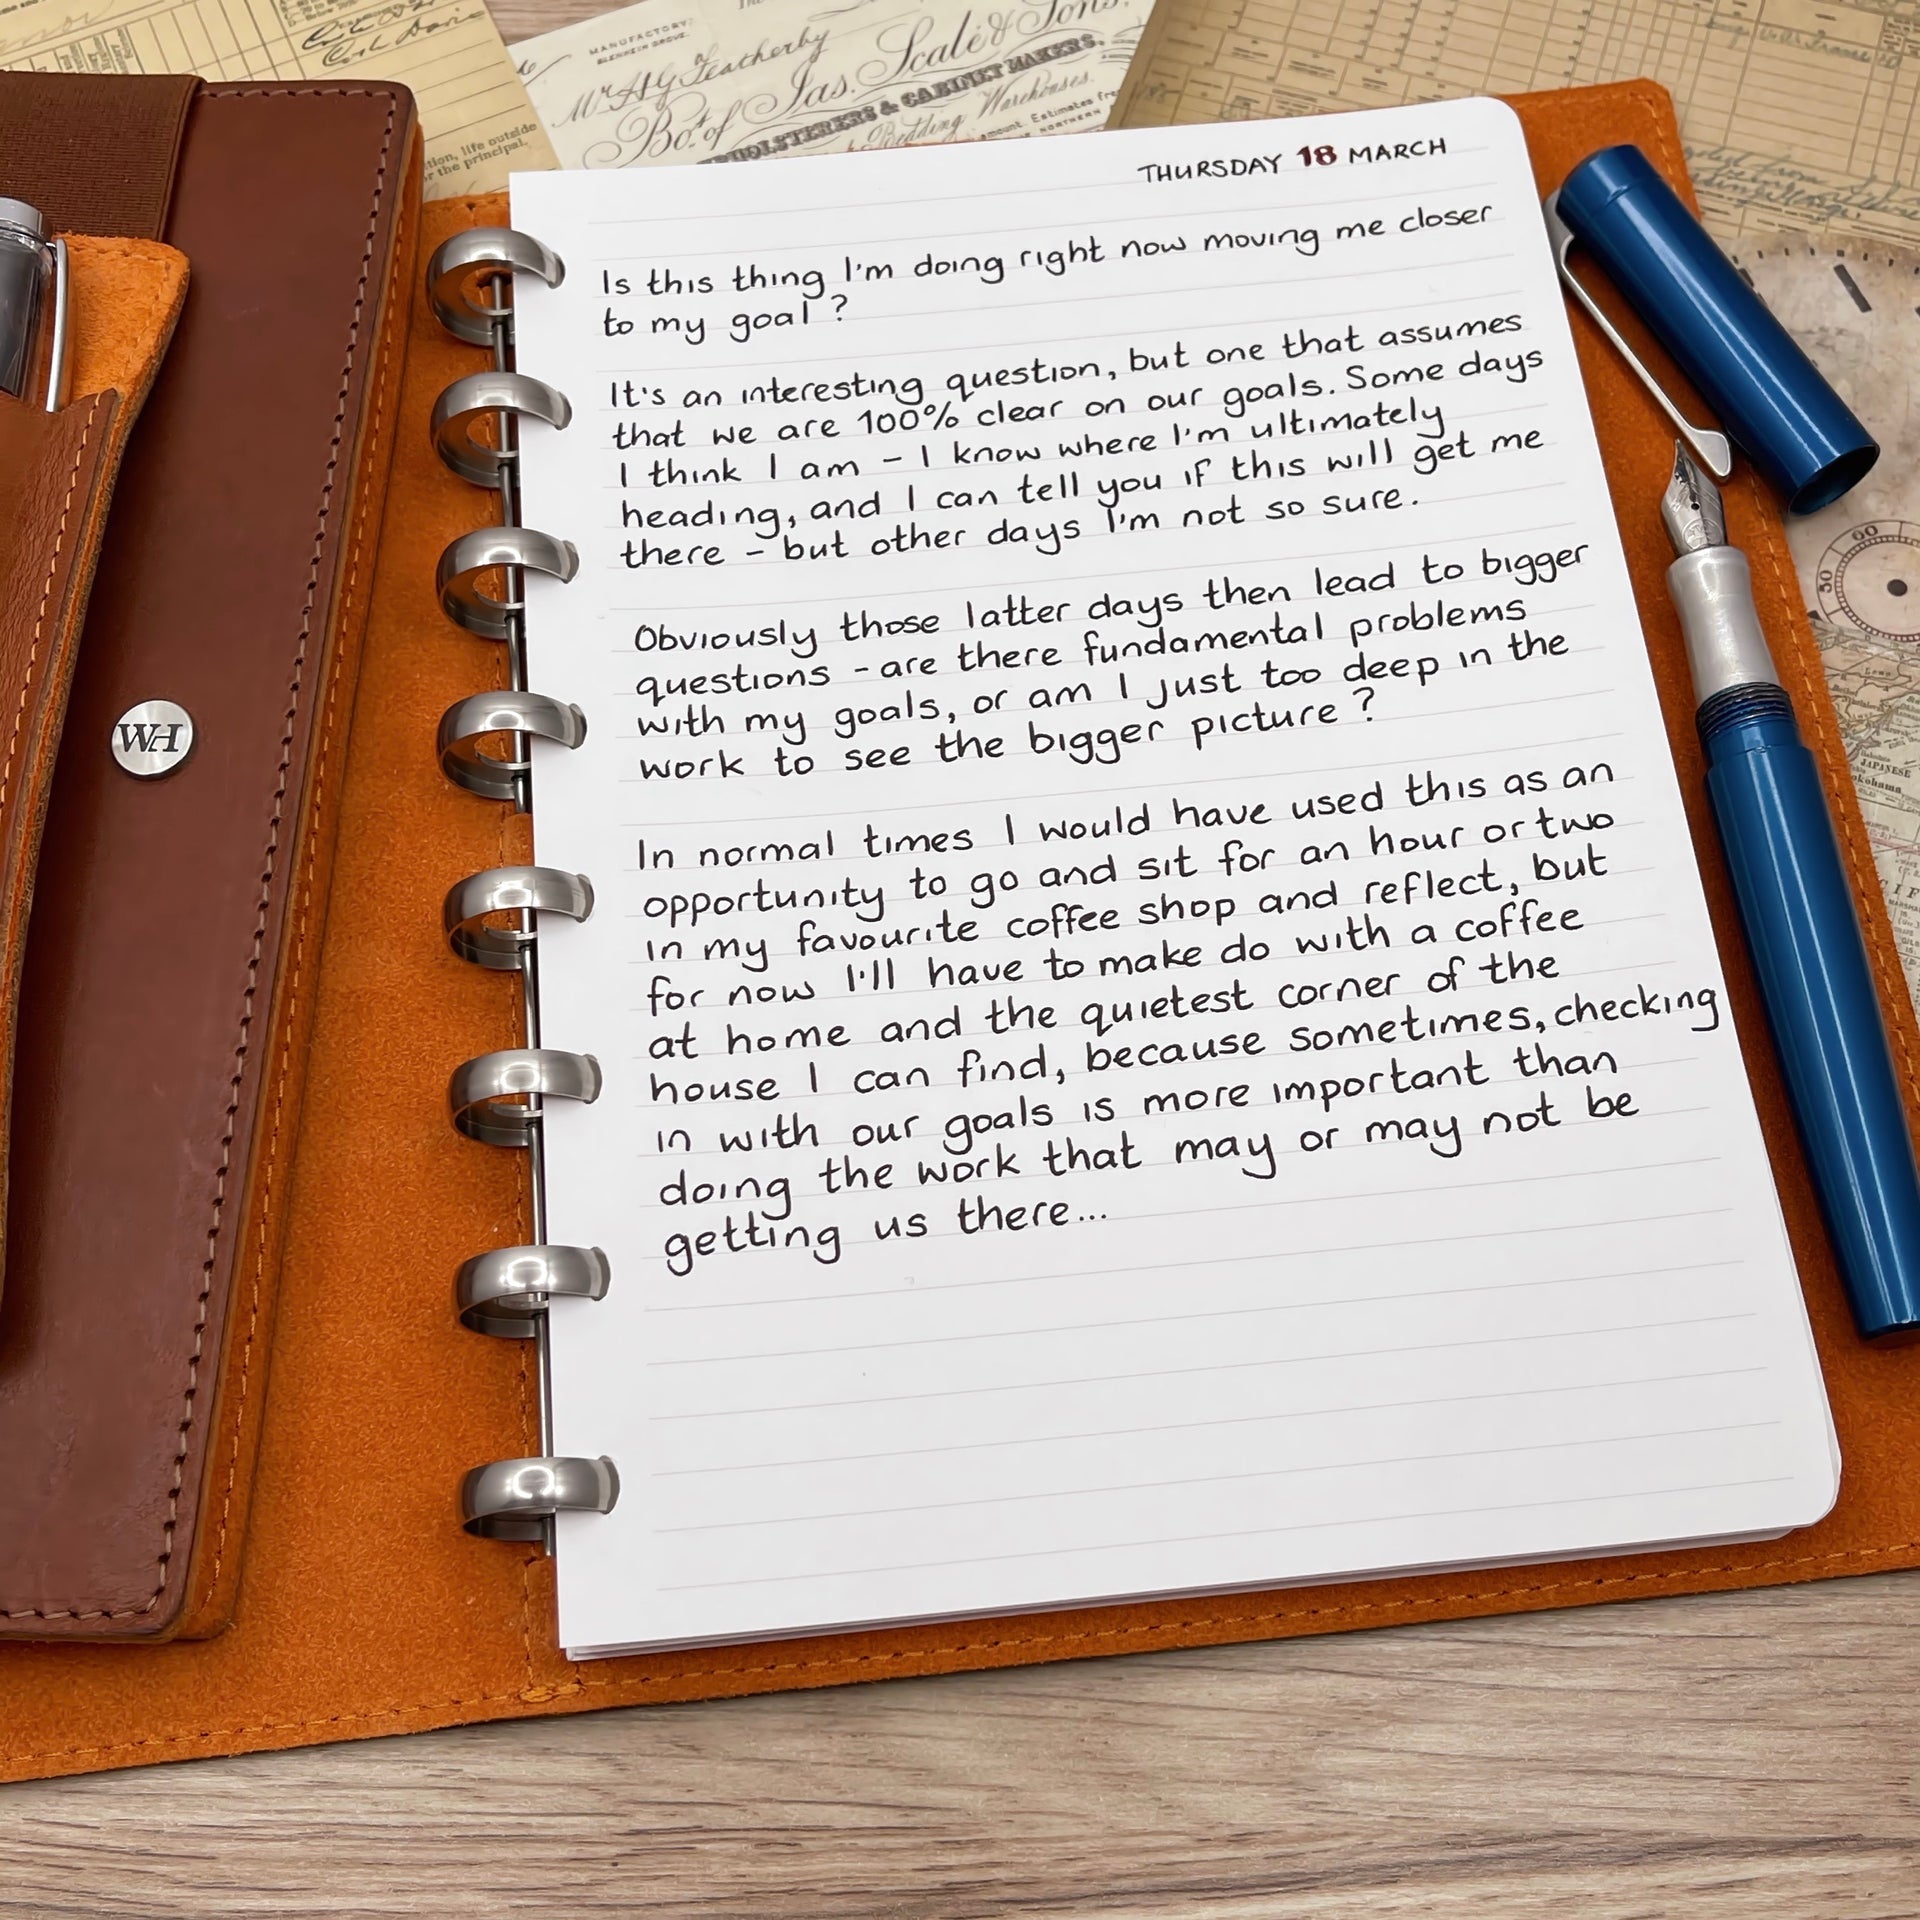 MANUFACTORY
Mr. A G Leatherby
Bot. of Jas. Scale & Sons.
UPHOLSTERERS & CABINET MAKERS.
Bedding Warehouses.
amount. Estimates fre
NORTHERN
tion, life outside
r the principal.
WH
THURSDAY 18 MARCH
Is this thing I'm doing right now moving me closer
to my goal?
It's an interesting question, but one that assumes
that we are 100% clear on our goals. Some days
I think I am - I know where I'm ultimately
heading, and I can tell you if this will get me
there - but other days I'm not so sure.
Obviously those latter days then lead to bigger
questions - are there fundamental problems
with my goals, or am I just too deep in the
work to see the bigger picture?
In normal times I would have used this as an
opportunity to go and sit for an hour or two
in my favourite coffee shop and reflect, but
for now I'll have to make do with a coffee
at home and the quietest corner of the
house I can find, because sometimes, checking
in with our goals is more important than
doing the work that may or may not be
getting us there...
60
50
JAPANESE
Yokohama